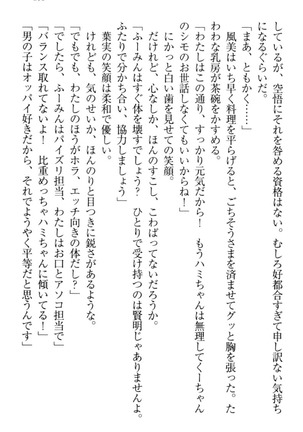 しているが、空悟にそれを咎める資格はない。むしろ好都合すぎて申し訳ない気持ち
になるぐらいだ。
「ま、ともかく……」
風美はいち早く料理を平らげると、ごちそうさまを済ませてグッと胸を張った。た
わわな乳房が茶碗をかすめる。
「わたしはこの通り、すっかり元気だから！　もうハミちゃんは無理してくーちゃん
のシモのお世話しなくてもいいからね！」
にかっと白い歯を見せての笑顔。
だけど、心なしか、ほんのすこし、こわばってないだろうか。
「ふーみんはすぐ体を壊すでしょう？　ひとりで受け持つのは賢明じゃありませんよ。
ふたりで分かち合い、協力しましょう」
葉実の笑顔は柔和で優しい。
けれども、気のせいか、ほんのりと目つきに鋭さがあるような。
「でもでも、わたしのほうがホラ、エッチ向きの体だし？」
「でしたら、ふーみんはパイズリ担当、わたしはお口とアソコ担当で」
「バランス取れてないよ！　比重めっちゃハミちゃんに傾いてる！」
「男の子はオッパイ好きだから、それでようやく平等だと思うんです」